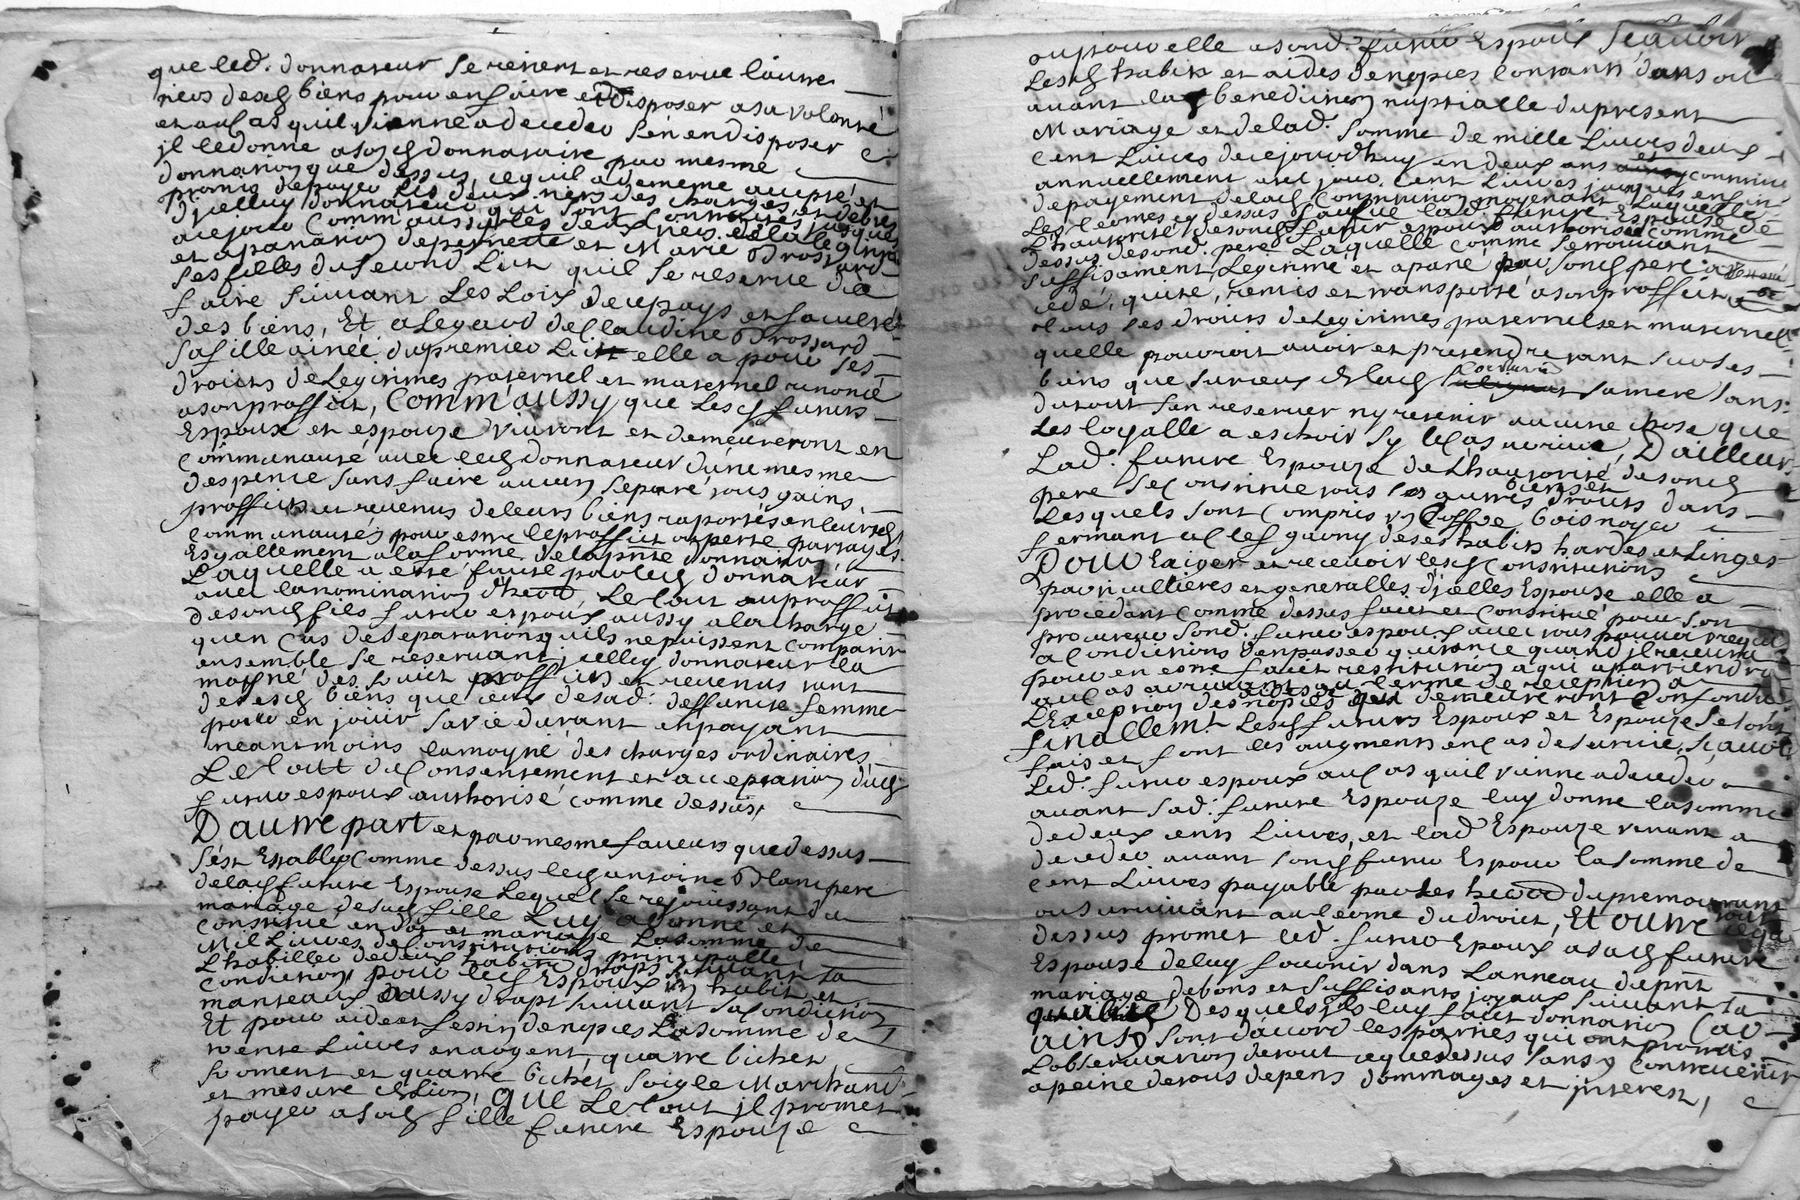 que led. donnateur se retient et reserve l'autre
tiers desd biens pour en faire et disposer a sa volonté
et au cas quil vienne a deceder sen en disposer
il le donne a sond donnataire par mesme
donnation que dessus, lequel a jcmeme accepté et
promis de payer les deux tiers des charges et
d'jcelluy donnateur qui sont et debtes
a cejourd comm'aussy les deux tiers de la legitime
et apanation de pernette et Marie Brossard
ses filles du second Lict quil se reserve de
faire suivant Les Loix du pays et faculté
des biens, Et a Legard de Claudine Brossard
sa fille ainée du premier Lict elle a pour ses
droicts de Legitimes paternel et maternel renoncé
a son proffict, Comm'aussy que Lesd futurs
Espoux et espouze vivront et demeureront en
Communauté avec led donnateur d'une mesme
despence sans faire aucun separé, tous gains,
profficts et revenus de leurs biens raportés en leursd
Communautés pour estre le proffict ou perte partagés
Esgallement a la forme de la pnte donnation
Laquelle a esté faite par led donnateur
avec la nomination Le tout au proffict
de sond fils futur espoux aussy a la charge
quen cas de separation quils ne puissent compatir
ensemble se reservant jcelluy donnateur la
moitié des fruict profficts et revenus tant
de sesd biens que ceux de sad. deffunte femme
pour en jouir sa vie durant en payant
neantmoins la moytié des charges ordinaires
Le tout du Consentement et acceptation dud
futur espoux authorisé comme dessus,
D'autre part et par mesme faveurs que dessus
s'est Establis Comme dessus led antoine Blanc pere
de lad future Espouse Lequel se rejouissant du
mariage de sad fille Luy a donné et
Constitué en dot et mariage La somme de
Mil Livres de Constitution principalle,
L'habiller de deux habits draps suivant sa
condition, pour led Espoux un habit et
manteaux aussy drapt suivant sa condition
Et pour aide et festin de nopces La somme de
trente Livres en argent, quatre bichet
froment et quatre bichet soigle Marchand
et mesure de Lion, que Le tout jl promet
payer a sad fille future Espouze
ou pour elle a sond. futur Espoux scavoir
Lesd habits et aides de nopces Contant dans ou
avant la benediction nuptialle du present
Mariage et delad. somme de mille Livres deux
cent Livres de cejourdhuy en deux ans et continuer
annuellement a tel jour. Cent Livres jusques enfin
de payement delad Constitution moyenant Laquelle
Les termes cy dessus lad. future Espouze de
L'hautorité de sond futur espoux authorisée comme
dessus de sond. pere Laquelle comme se trouvant
suffisament Legitimé et apané par sond pere a
cedé, quitté, remis et transporté a son proffict
tous ses droits de Legitimes paternels et maternels
quelle pourroit avoir et pretendre tant sur ses
biens que sur ceux de lad sa mere sans
du tout s'en reserver ny retenir aucune chose que
Les loyalle a eschoir sy le cas arrive, D'ailleurs
Lad. future Espouze de L'hautorité de sond
pere se Constitue tous ses autres biens et droits dans
Lesquels sont Compris un Coffre bois noyer
fermant a clef garny de ses habits hardes et Linges
Pour Exiger et recevoir lesd Constitutions
particullieres et generalles d'jcelles Espouse elle a
procedant Comme dessus fait et Constitué pour son
procureur sond. futur espoux avec tous pouvoir requis
a Conditions d'en passer quittance quand jl recevra
pour en estre fait restitution a qui apartiendra
au cas arrivant au terme de reception a
L'Exception des nopces qui demeureront Confondu
finallemt. Lesd futurs Espoux et Espouze se sont
fais et font les augments en cas de survie, scavoir
Led. futur espoux au cas quil vienne a deceder
avant sad. future Espouze luy donne la somme
de deux cents Livres, et lad Espouze venant a
deceder avant sond futur Espoux la somme de
cent Livres payable par les du premourant
au survivant au terme du droit, Et outre tout
dessus promet led. futur Epoux a sad future
Espouse de luy fournir dans L'anneau du pnt
mariage de bons et suffisants joyaux suivant sa
qualité Desquels jls luy fait donnation Car
ainsy sont d'acord les parties qui ont promis
L'observation de tout ce que dessus sans y contrevenir
a peine de tous depens dommages et interest,